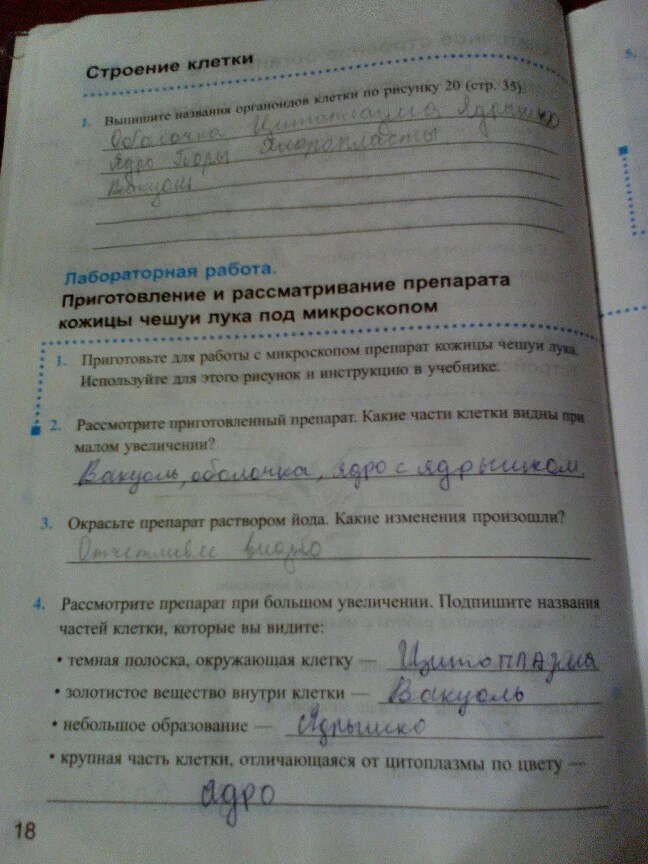 Строение клетки
1. Выпишите названия органоидов клетки по рисунку 20 (стр. 35).
Оболочка Цитоплазма Ядрышко
Ядро Поры Хлоропласты
Вакуоль
Лабораторная работа.
Приготовление и рассматривание препарата
кожицы чешуи лука под микроскопом
1. Приготовьте для работы с микроскопом препарат кожицы чешуи лука.
Используйте для этого рисунок и инструкцию в учебнике.
2. Рассмотрите приготовленный препарат. Какие части клетки видны при
малом увеличении?
Вакуоль, оболочка, ядро с ядрышком.
3. Окрасьте препарат раствором йода. Какие изменения произошли?
Отчетливее видно
4. Рассмотрите препарат при большом увеличении. Подпишите названия
частей клетки, которые вы видите:
• темная полоска, окружающая клетку — Цитоплазма
• золотистое вещество внутри клетки — Вакуоль
• небольшое образование — Ядрышко
• крупная часть клетки, отличающаяся от цитоплазмы по цвету —
ядро
18
5.